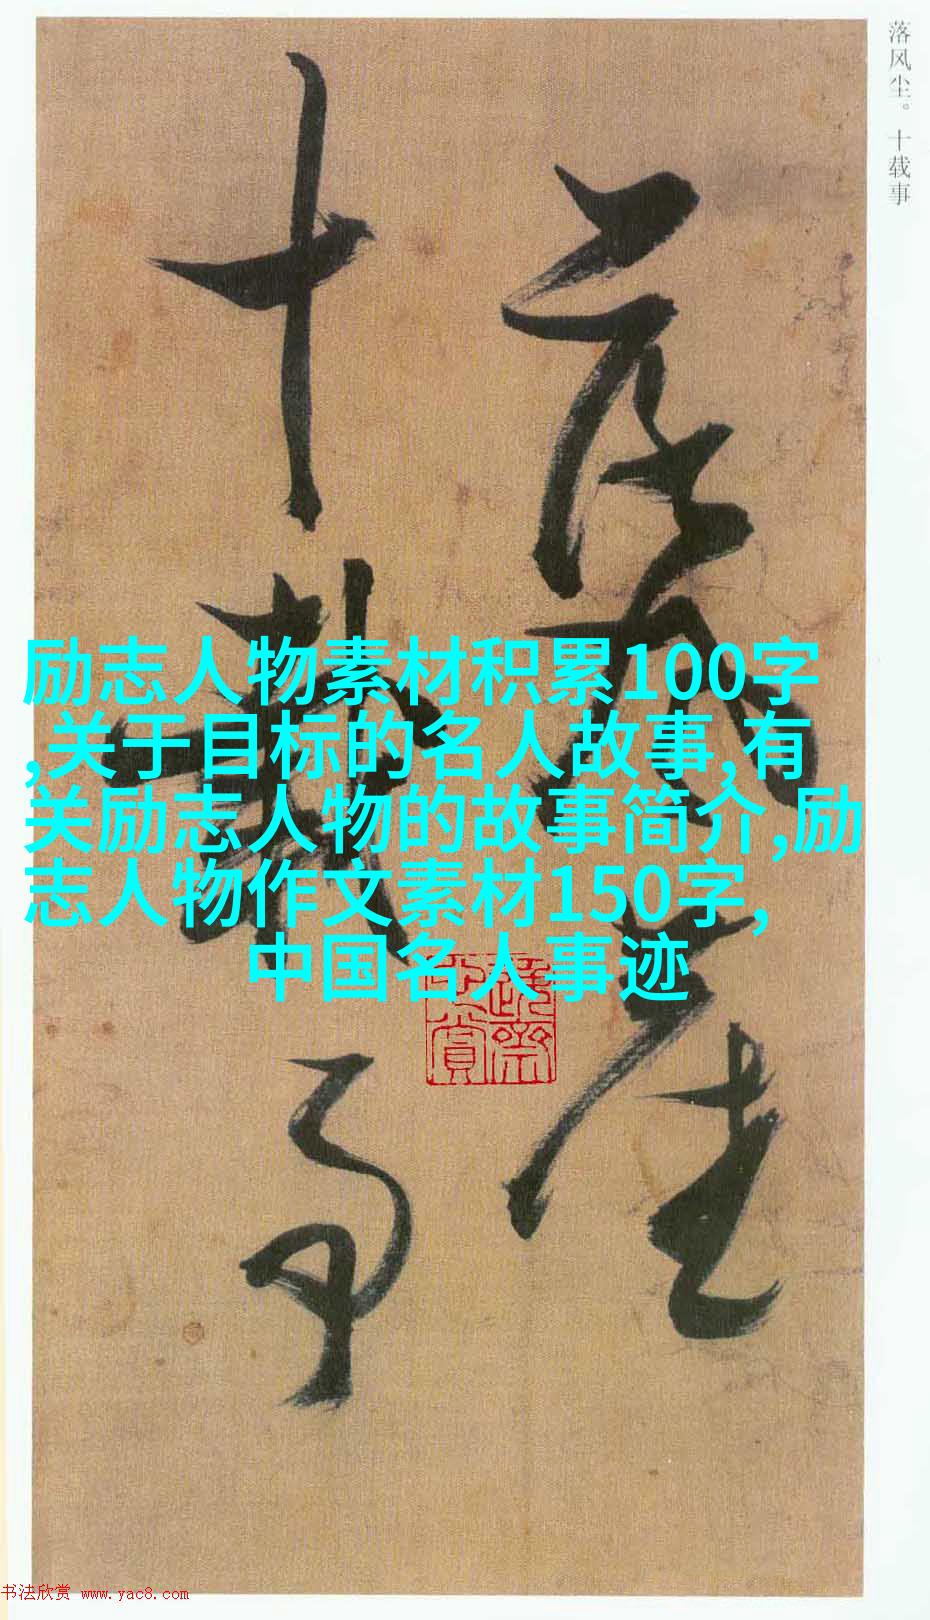 落风尘。十载事
落风尘
十载事
励志人物素材积累100字
,关于目标的名人故事,有
关励志人物的故事简介,励
志人物作文素材150字,
中国名人事迹
书法欣赏 www.yac8.com